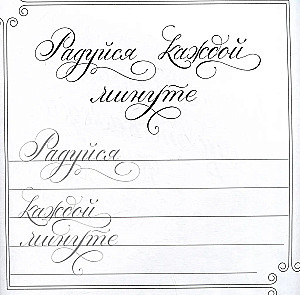 Радуйся каждой
минуте
Радуйся
каждой
минуте